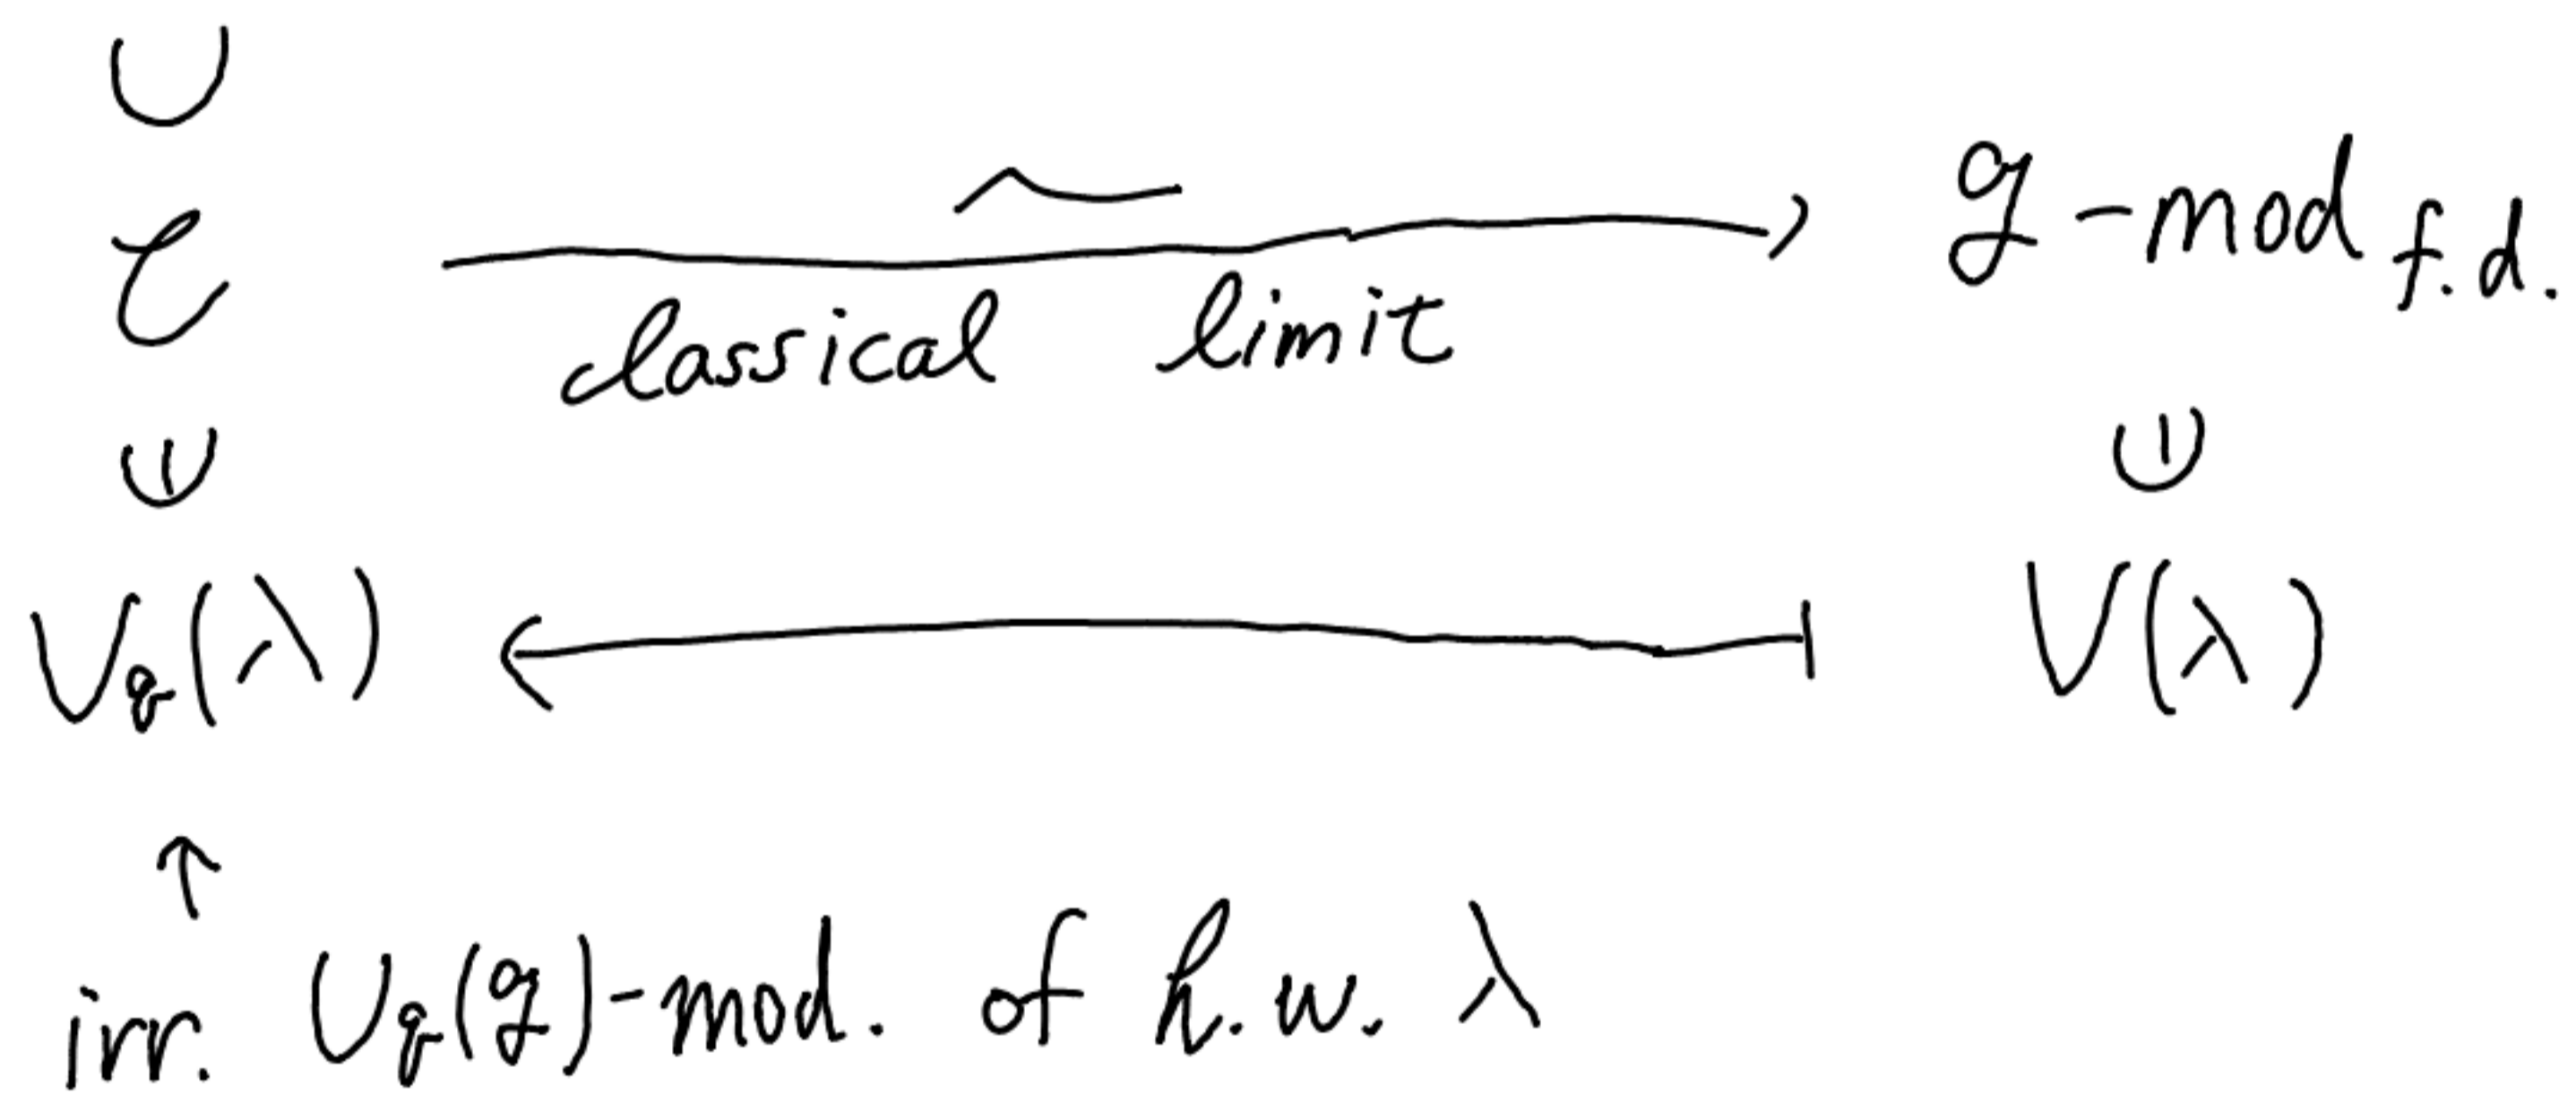 ∪
𝒞 ~ classical limit → 𝔤-mod f.d.
∈ ∈
V_q(λ) ⟻ V(λ)
↑
irr. U_q(𝔤)-mod. of h.w. λ